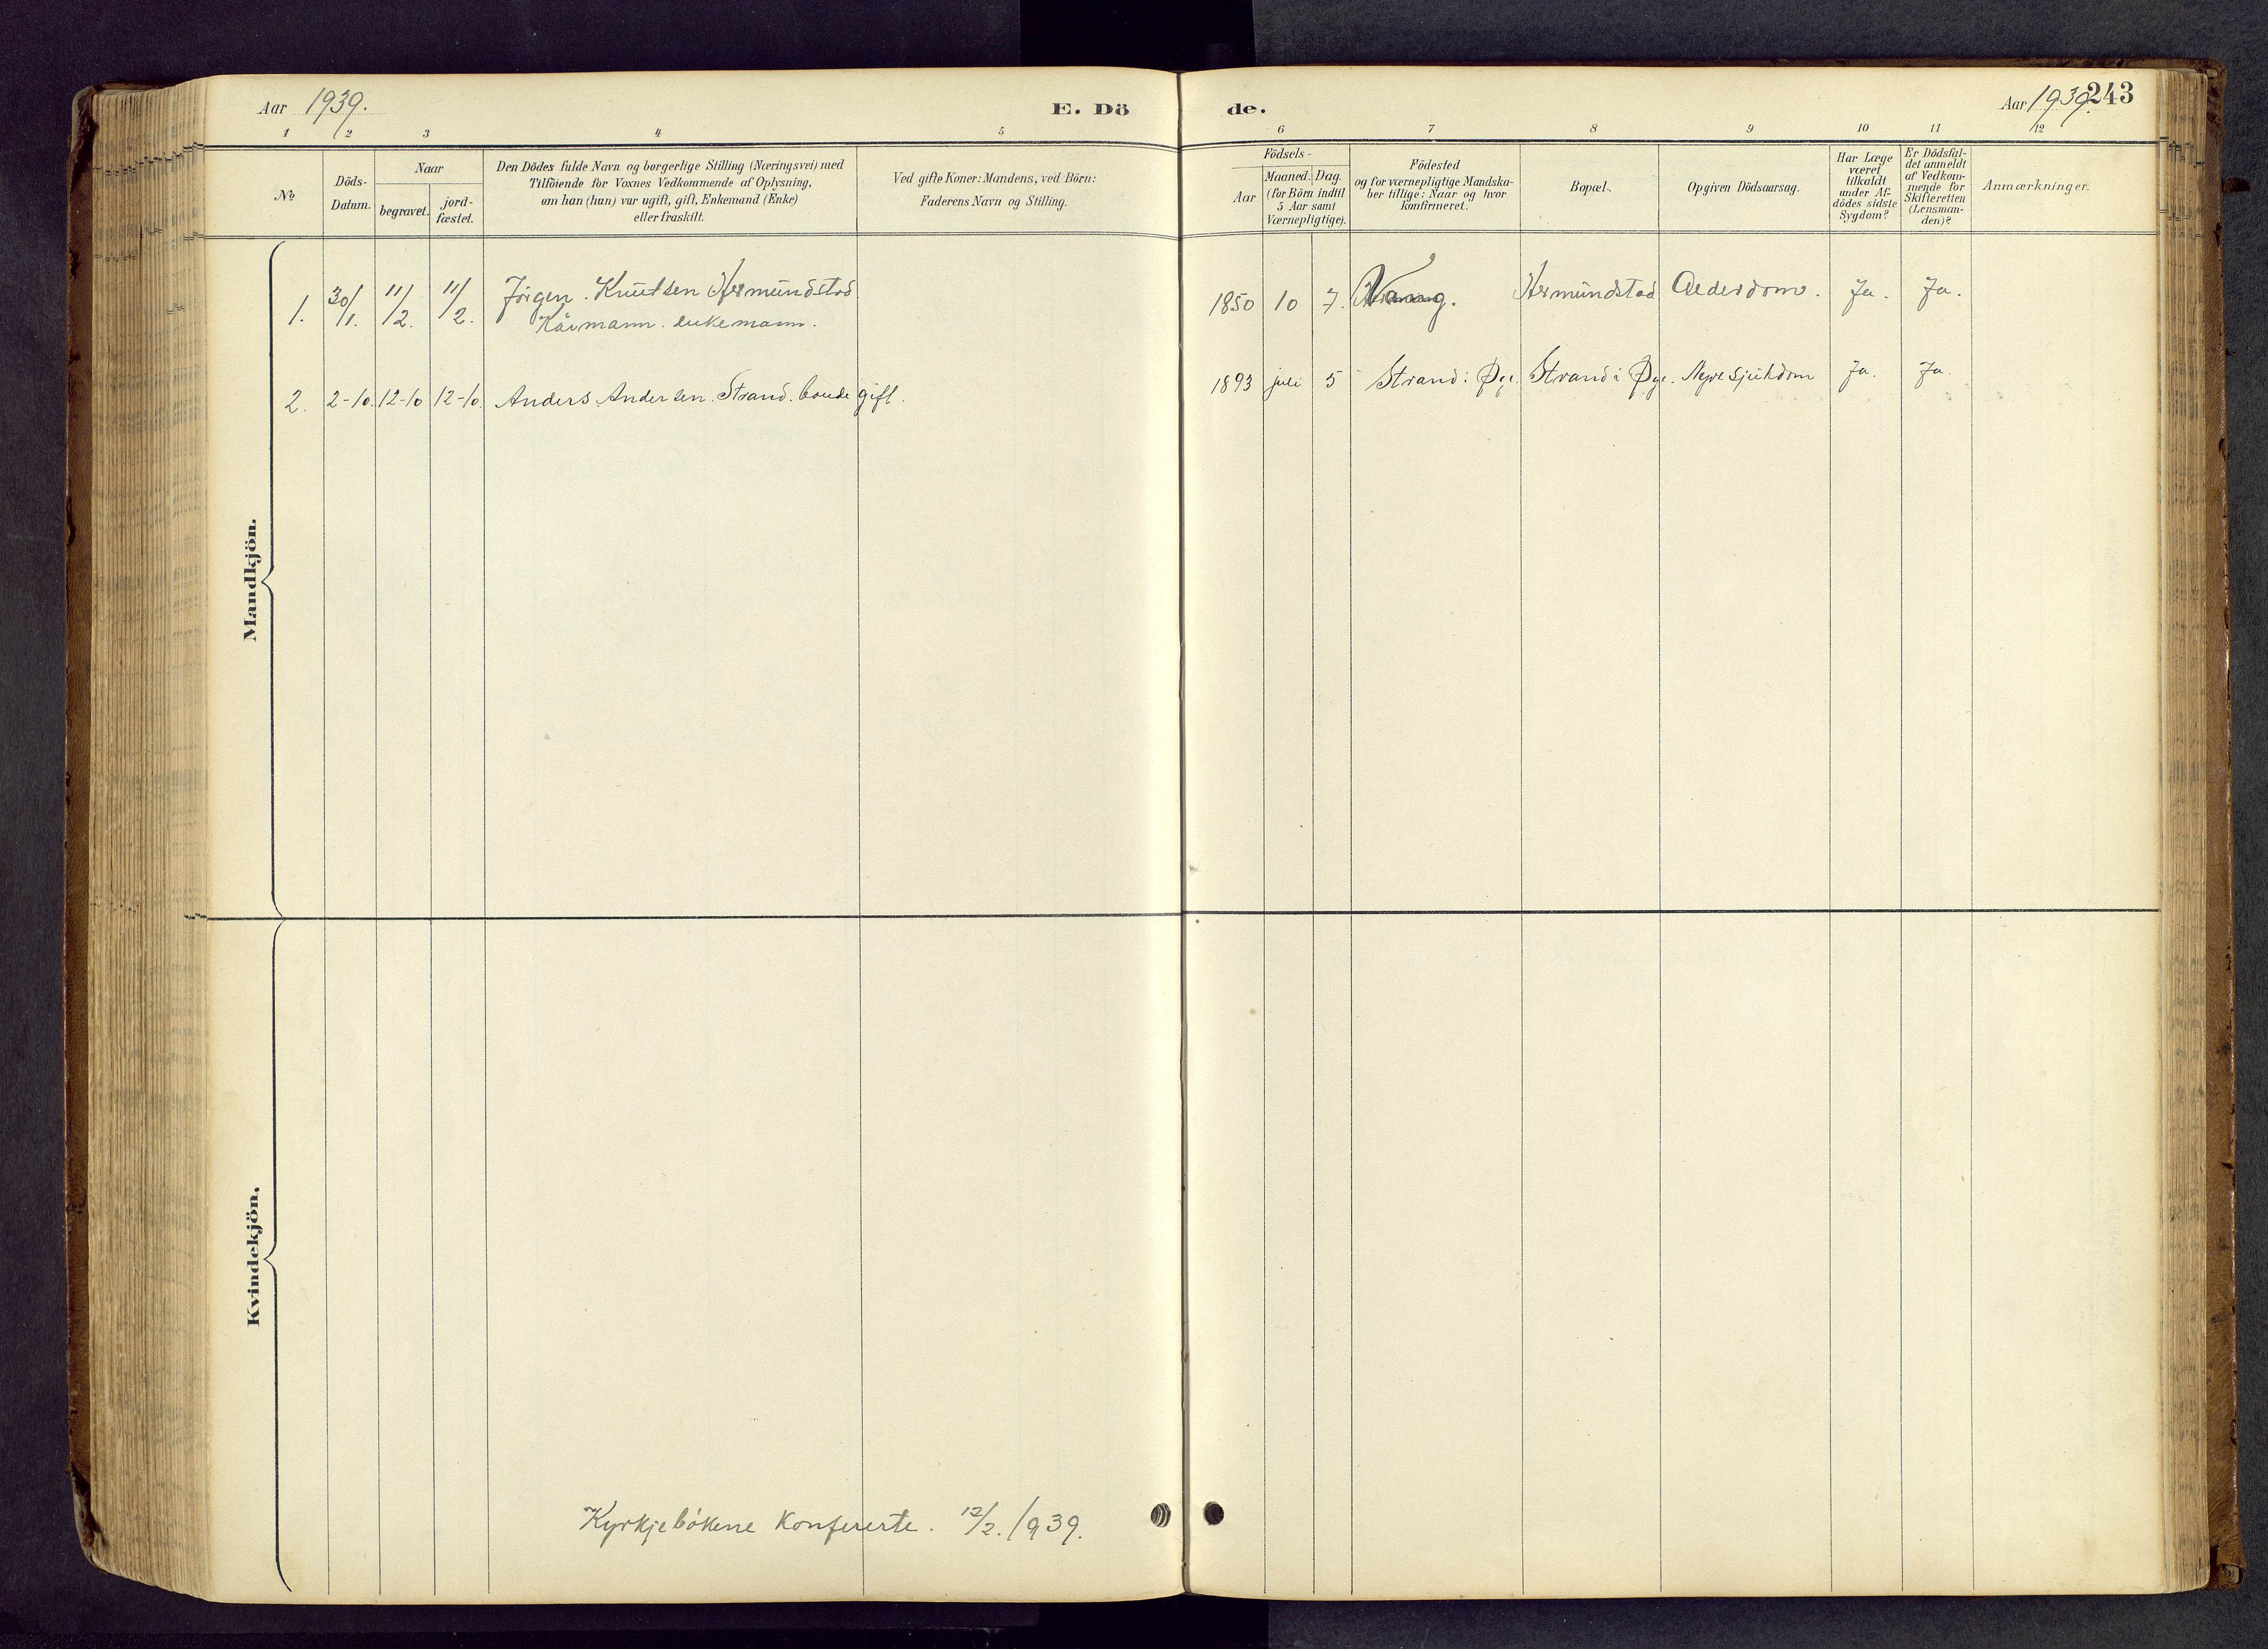 Aar 1939. E. Dö de. Aar 1939. 243
1 2 3 4 5 6 7 8 9 10 11 12
№
Döds-
Datum.
Naar
begravet.
jord-
fæstet.
Den Dödes fulde Navn og borgerlige Stilling (Næringsvei) med
Tilföiende for Voxnes Vedkommende af Oplysning,
om han (hun) var ugift, gift, Enkemand (Enke)
eller fraskilt.
Ved gifte Koner: Mandens, ved Börn:
Faderens Navn og Stilling.
Födsels-
Aar
Maaned. Dag.
(for Börn indtil
5 Aar samt
Værnepligtige).
Födested
og for værnepligtige Mandska-
ber tillige: Naar og hvor
konfirmeret.
Bopæl.
Opgiven Dödsaarsag.
Har Læge
været
tilkaldt
under Af-
dödes sidste
Sygdom?
Er Dödsfal-
det anmeldt
af Vedkom-
mende for
Skifteretten
(Lensman-
den)?
Anmærkninger.
Mandkjön.
1. 30/1. 11/2. 11/2. Jörgen. Knutsen Hermundstad 1850 10 7. Vang. Hermundstad Alderdom. Ja. Ja.
Kårmann. enkemann.
2. 2-10. 12-10 12-10. Anders Andersen Strand. bonde gift. 1893 juli 5 Strand i Øye. Strand i Øye. Nyresjukdom Ja. Ja.
Kvindekjön.
Kyrkjebökene konfererte. 12/2. 1939.